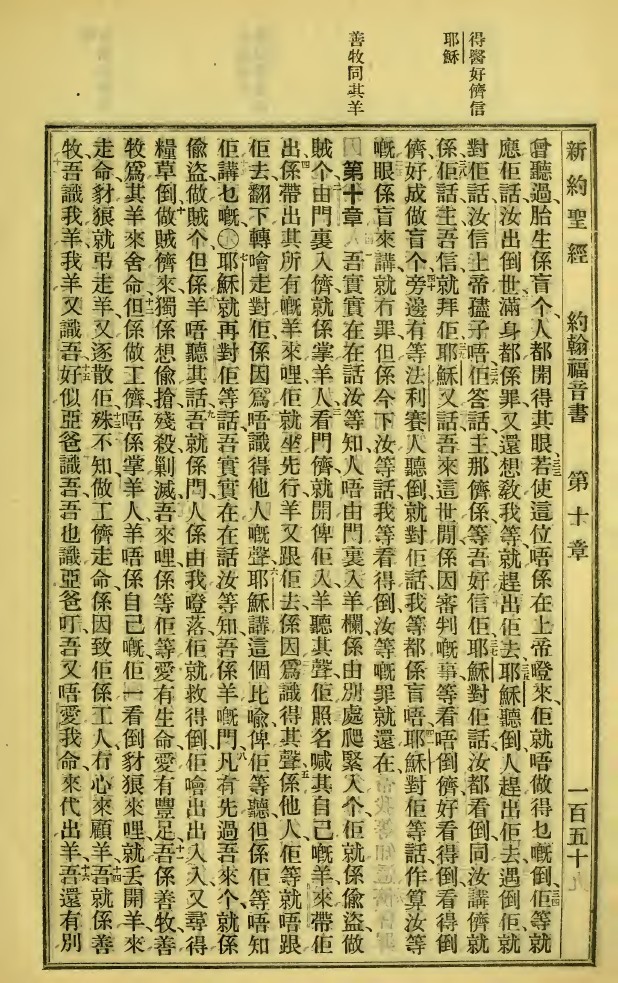 得醫好儕信
耶穌
善牧同其羊
新約聖經 約翰福音書 第十章 一百五十
曾聽過胎生係盲个人都開得其眼三三若使這位唔係在上帝嶝來佢就唔做得乜嘅倒三四佢等就
應佢話汝出倒世滿身都係罪又還想教我等就趕出佢去三五耶穌聽倒人趕出佢去遇倒佢就
對佢話汝信上帝孻子唔三六佢答話主那儕係等吾好信佢三七耶穌對佢話汝都看倒同汝講儕就
係佢三八佢話主吾信就拜佢三九耶穌又話吾來這世間係因審判嘅事等看唔倒儕好看得倒看得倒
儕好成做盲个四十旁邊有等法利賽人聽倒就對佢話我等都係盲唔四一耶穌對佢等話作算汝等
嘅眼係盲來講就冇罪但係今下汝等話我等看得倒汝等嘅罪就還在
第十章 一吾實實在在話汝等知人唔由門裏入羊欄係由別處爬緊入个佢就係偷盜做
賊个二由門裏入儕就係掌羊人三看門儕就開俾佢入羊聽其聲佢照名喊其自己嘅羊來帶佢
出四係帶出其所有嘅羊來哩佢就坐先行羊又跟佢去係因爲識得其聲五係他人佢等就唔跟
佢去翻下轉噲走對佢係因爲唔識得他人嘅聲六耶穌講這個比喻俾佢等聽但係佢等唔知
佢講乜嘅七耶穌就再對佢等話吾實實在在話汝等知吾係羊嘅門八凡有先過吾來个就係
偷盜做賊个但係羊唔聽其話九吾就係門人係由我嶝落佢就救得倒佢噲出出入入又尋得
糧草倒十做賊儕來獨係想偷搶殘殺剿滅吾來哩係等佢等愛有生命愛有豐足十一吾係善牧善
牧爲其羊來舍命十二但係做工儕唔係掌羊人羊唔係自己嘅佢一看倒豺狼來哩就丟開羊來
走命豺狼就弔走羊又逐散佢殊不知十三做工儕走命係因致佢係工人冇心來顧羊十四吾就係善
牧吾識我羊我羊又識吾十五好似亞爸識吾吾也識亞爸吾又唔愛我命來代出羊十六吾還有別